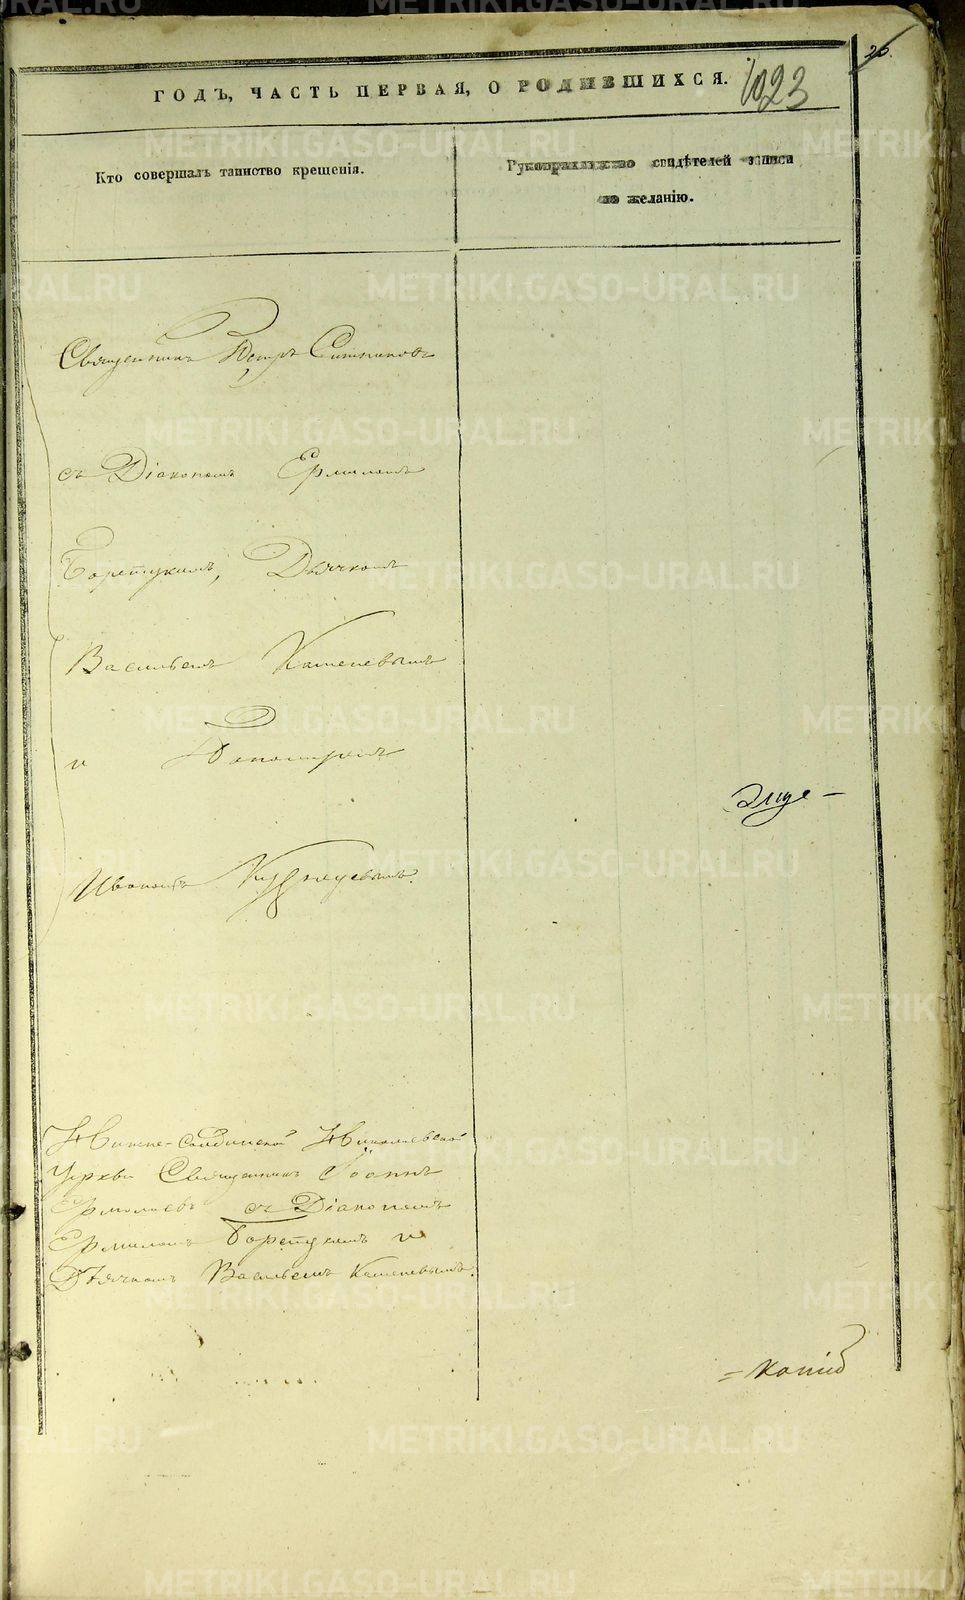 26.
ГОДЪ, ЧАСТЬ ПЕРВАЯ, О РОДИВШИХСЯ.
1023
Кто совершалъ таинство крещенія.
Рукоприкладство свидѣтелей записи
по желанію.
Священникъ Петръ Ситниковъ
съ Діакономъ Ермиломъ
Борецкимъ, Дьячкомъ
Васильемъ Каменевымъ
и Пономаремъ
Иваномъ Кузнецовымъ.
Нижне-Салдинской Николаевской
Церкви Священникъ Іоаннъ
Ермолаевъ съ Діакономъ
Ермиломъ Борецкимъ и
Дьячкомъ Васильемъ Каменевымъ.
= копію
METRIKI.GASO-URAL.RU